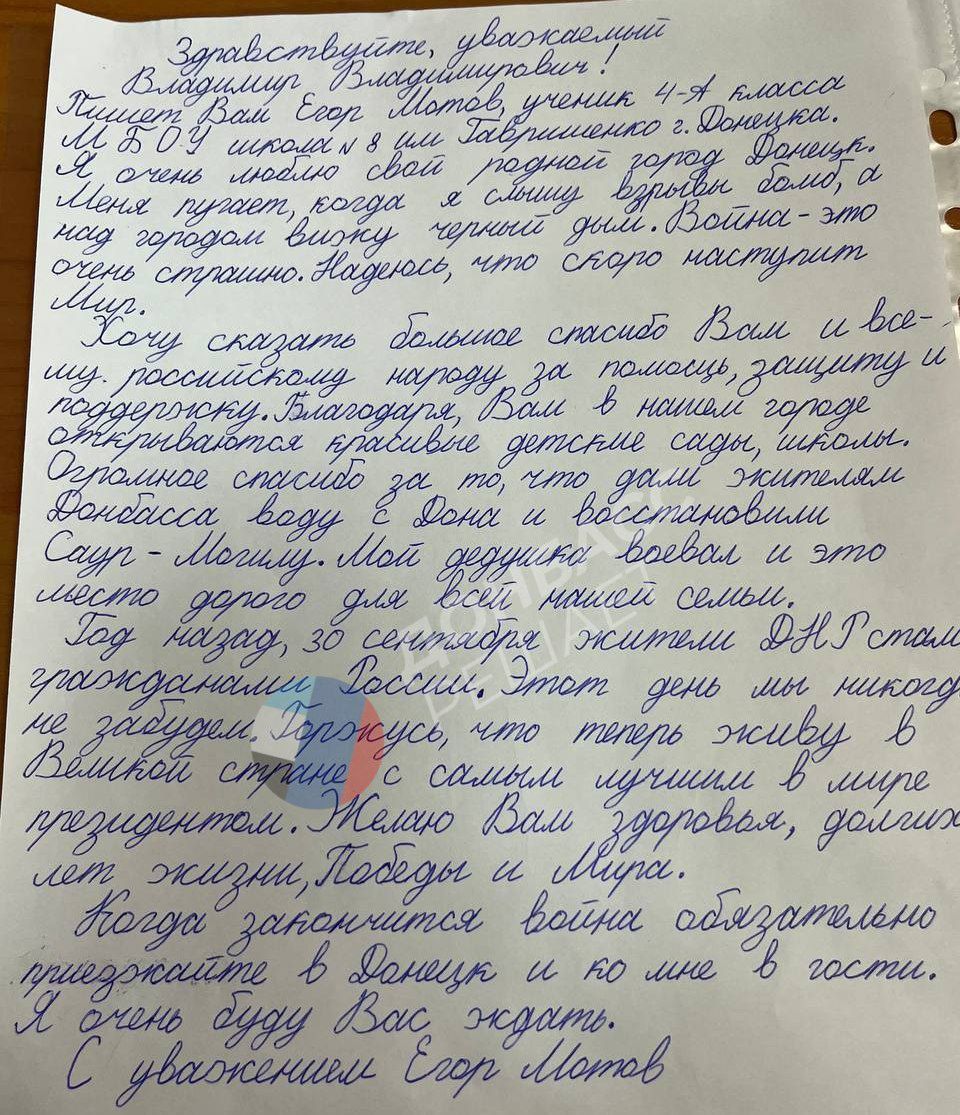 Здравствуйте, уважаемый
Владимир Владимирович!
Пишет Вам Егор Мотов, ученик 4-А класса
МБОУ школа №8 им Гавришенко г. Донецка.
Я очень люблю свой родной город Донецк.
Меня пугает, когда я слышу взрывы бомб, а
над городом вижу черный дым. Война - это
очень страшно. Надеюсь, что скоро наступит
Мир.
Хочу сказать большое спасибо Вам и все-
му. российскому народу за помощь, защиту и
поддержку. Благодаря, Вам в нашем городе
открываются красивые детские сады, школы.
Огромное спасибо за то, что дали жителям
Донбасса воду с Дона и восстановили
Саур - Могилу. Мой дедушка воевал и это
место дорого для всей нашей семьи.
Год назад, 30 сентября жители ДНР стал
гражданами России. Этот день мы никогд
не забудем. Горжусь, что теперь живу в
Великой стране с самым лучшим в мире
президентом. Желаю Вам здоровья, долгих
лет жизни, Победы и Мира.
Когда закончится война обязательно
приезжайте в Донецк и ко мне в гости.
Я очень буду Вас ждать.
С уважением Егор Мотов
ДОНБАСС
РЕШАЕТ